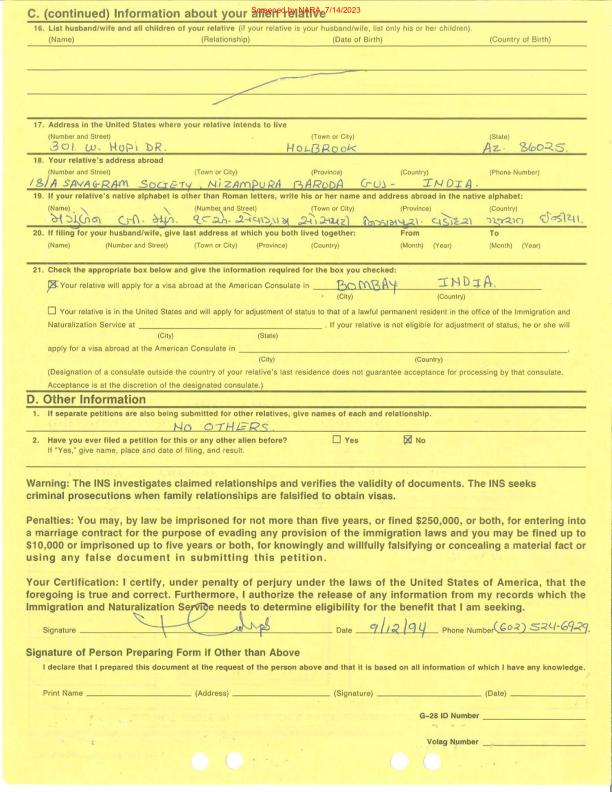 Screened by NARA, 7/14/2023
C. (continued) Information about your alien relative
16. List husband/wife and all children of your relative (if your relative is your husband/wife, list only his or her children).
(Name) (Relationship) (Date of Birth) (Country of Birth)
17. Address in the United States where your relative intends to live
(Number and Street) (Town or City) (State)
301. W. HOPI DR. HOLBROOK AZ. 86025.
18. Your relative's address abroad
(Number and Street) (Town or City) (Province) (Country) (Phone Number)
18/A SAVAGRAM SOCIETY, NIZAMPURA BARODA GUJ- INDIA.
19. If your relative's native alphabet is other than Roman letters, write his or her name and address abroad in the native alphabet:
(Name) (Number and Street) (Town or City) (Province) (Country)
વડોદરા ગુજરાત
20. If filing for your husband/wife, give last address at which you both lived together: From To
(Name) (Number and Street) (Town or City) (Province) (Country) (Month) (Year) (Month) (Year)
21. Check the appropriate box below and give the information required for the box you checked:
Your relative will apply for a visa abroad at the American Consulate in BOMBAY INDIA.
(City) (Country)
Your relative is in the United States and will apply for adjustment of status to that of a lawful permanent resident in the office of the Immigration and
Naturalization Service at . If your relative is not eligible for adjustment of status, he or she will
(City) (State)
apply for a visa abroad at the American Consulate in ,
(City) (Country)
(Designation of a consulate outside the country of your relative's last residence does not guarantee acceptance for processing by that consulate.
Acceptance is at the discretion of the designated consulate.)
D. Other Information
1. If separate petitions are also being submitted for other relatives, give names of each and relationship.
NO OTHERS.
2. Have you ever filed a petition for this or any other alien before? Yes No
If "Yes," give name, place and date of filing, and result.
Warning: The INS investigates claimed relationships and verifies the validity of documents. The INS seeks
criminal prosecutions when family relationships are falsified to obtain visas.
Penalties: You may, by law be imprisoned for not more than five years, or fined $250,000, or both, for entering into
a marriage contract for the purpose of evading any provision of the immigration laws and you may be fined up to
$10,000 or imprisoned up to five years or both, for knowingly and willfully falsifying or concealing a material fact or
using any false document in submitting this petition.
Your Certification: I certify, under penalty of perjury under the laws of the United States of America, that the
foregoing is true and correct. Furthermore, I authorize the release of any information from my records which the
Immigration and Naturalization Service needs to determine eligibility for the benefit that I am seeking.
Signature Date 9/12/94 Phone Number (602) 524-6929.
Signature of Person Preparing Form if Other than Above
I declare that I prepared this document at the request of the person above and that it is based on all information of which I have any knowledge.
Print Name (Address) (Signature) (Date)
G-28 ID Number
Volag Number